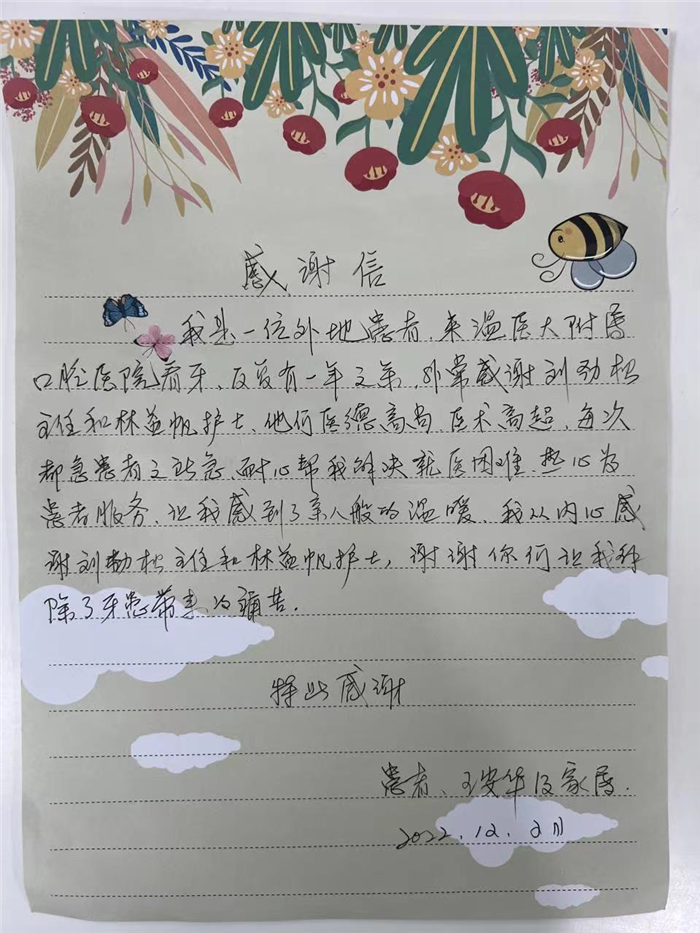 感谢信
我是一位外地患者,来温医大附属
口腔医院看牙,反复有一年之余,非常感谢刘劲松
主任和林益帆护士,他们医德高尚,医术高超,每次
都急患者之所急,耐心帮我解决就医困难.热心为
患者服务,让我感到了亲人般的温暖,我从内心感
谢刘劲松主任和林益帆护士,谢谢你们让我解
除了牙患带来的痛苦.
特此感谢
患者、王安华及家属.
2022.12.2日